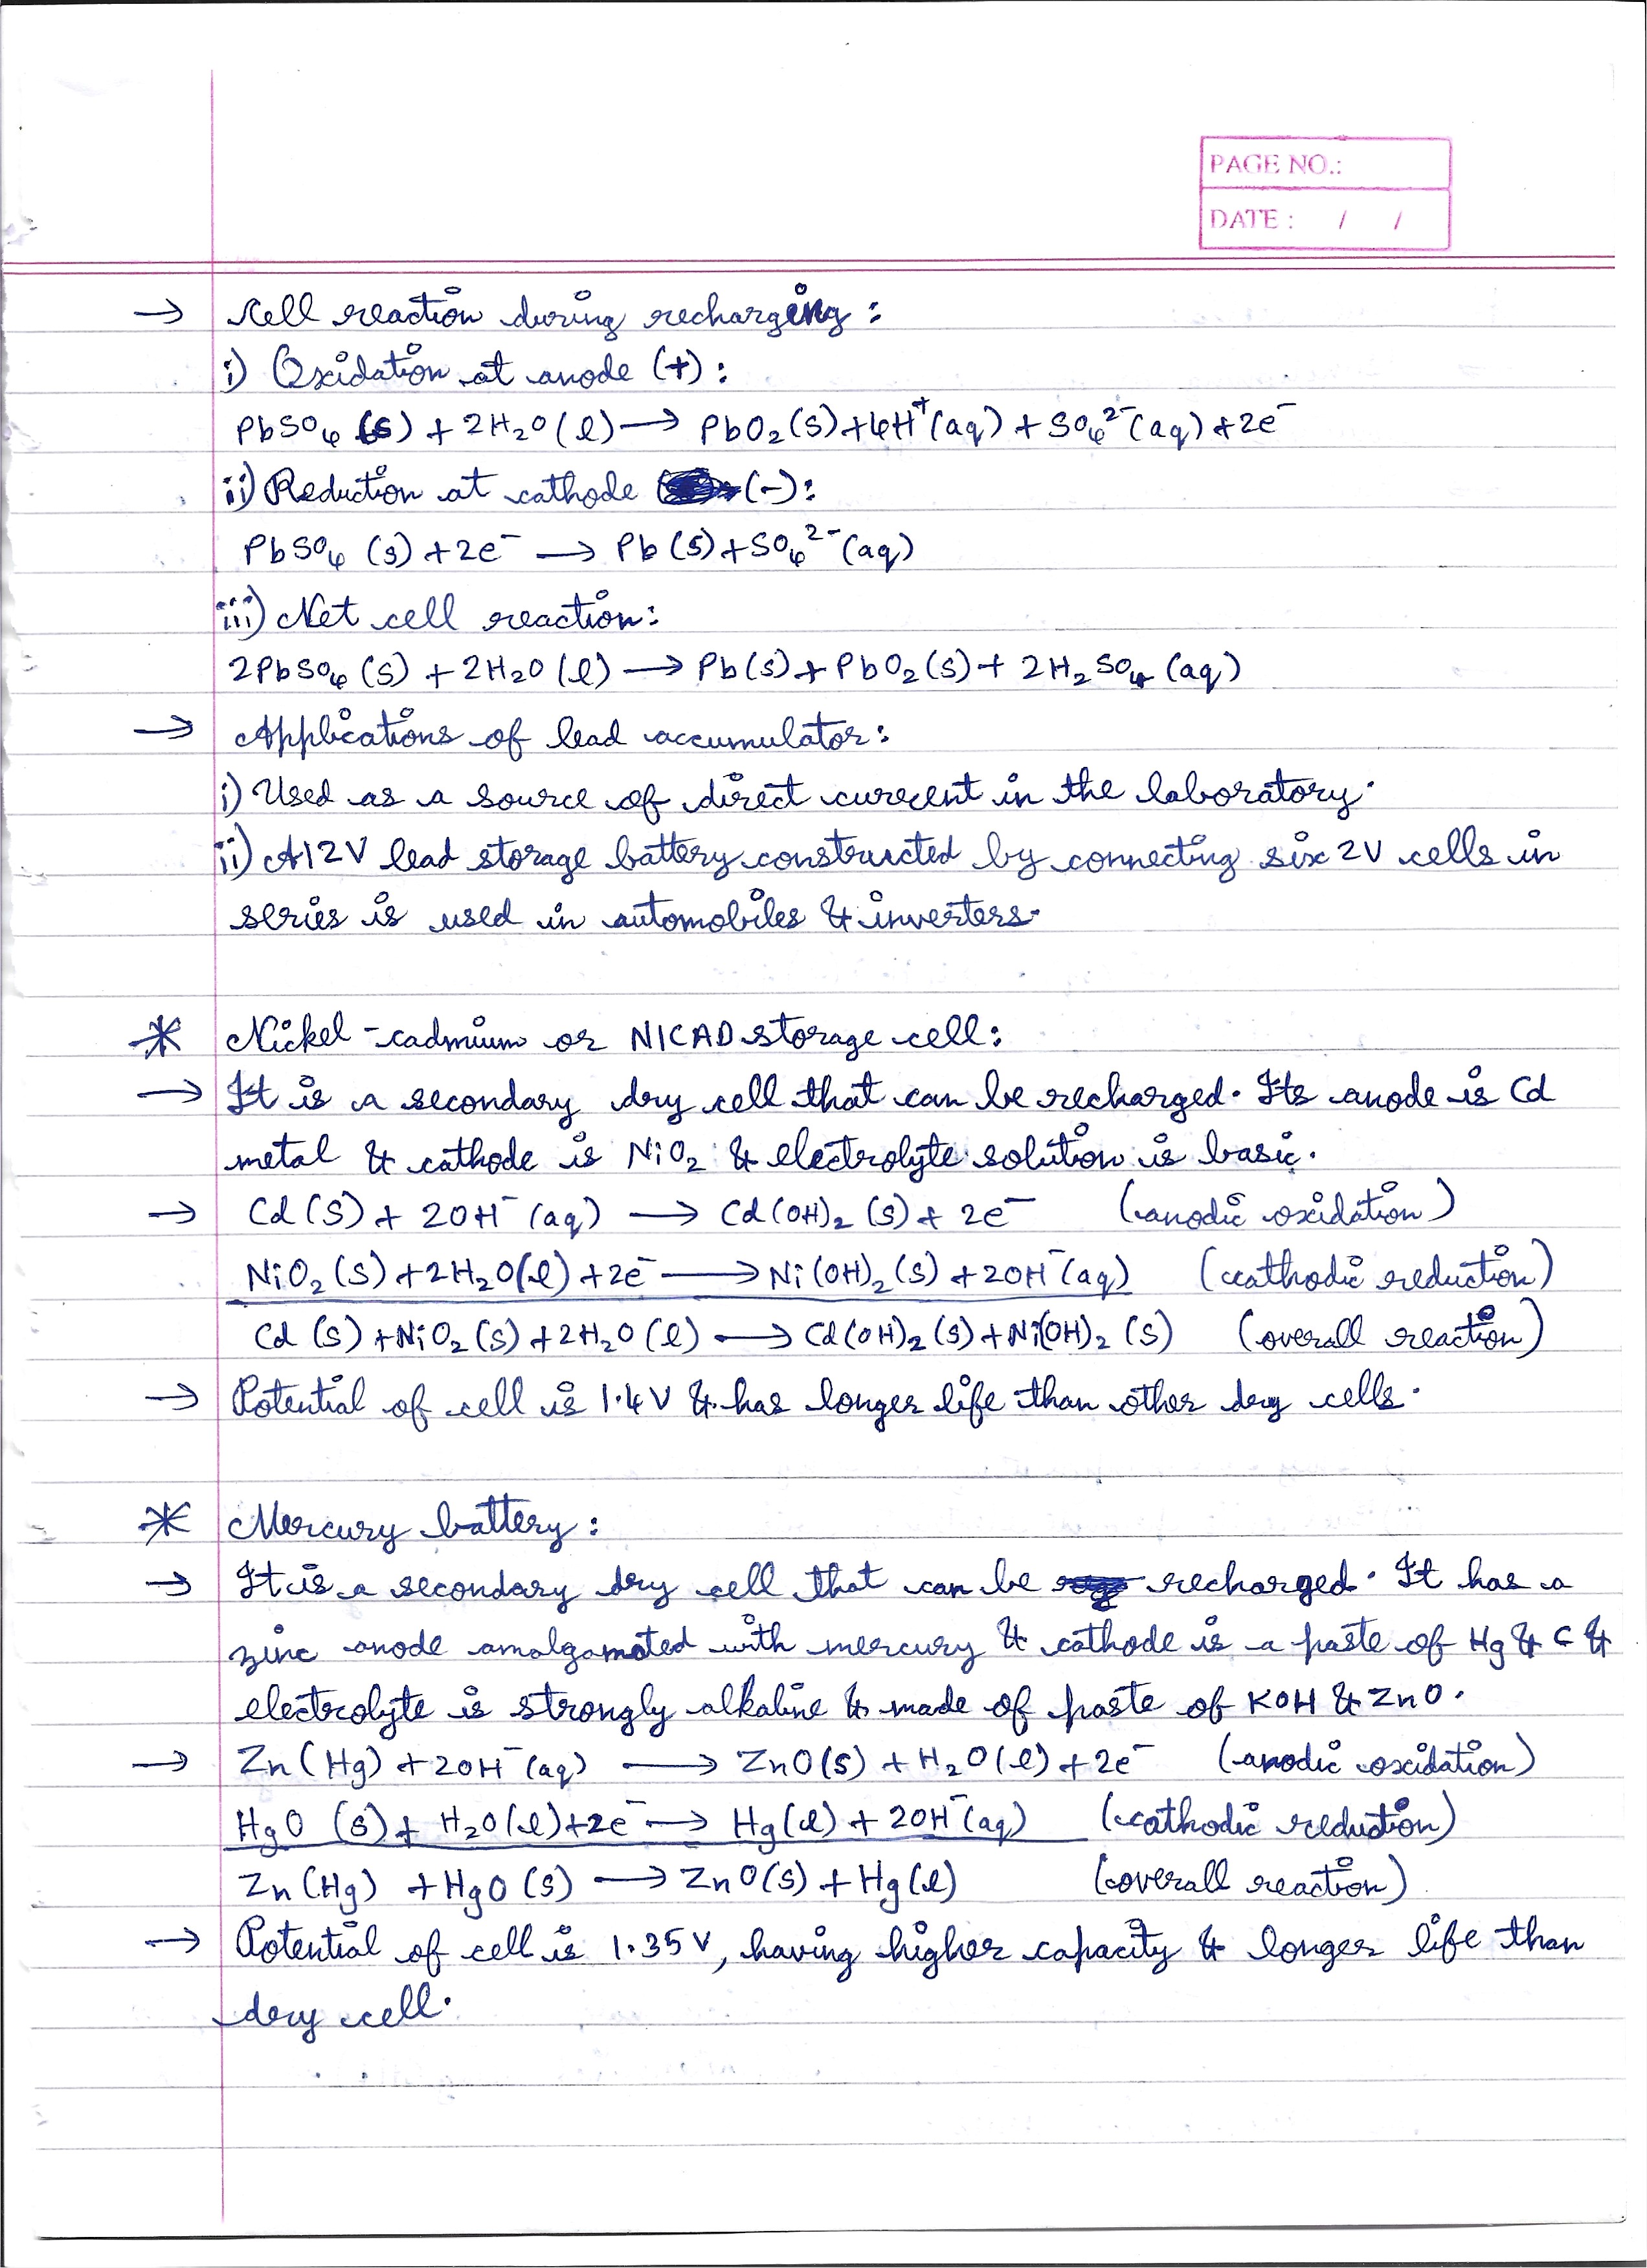 PAGE NO.:
DATE : / /
→ Cell reaction during recharging :
i) Oxidation at anode (+) :
PbSO₄ (s) + 2H₂O (l) → PbO₂ (s) + 4H⁺ (aq) + SO₄²⁻ (aq) + 2e⁻
ii) Reduction at cathode (-) :
PbSO₄ (s) + 2e⁻ → Pb (s) + SO₄²⁻ (aq)
iii) Net cell reaction :
2PbSO₄ (s) + 2H₂O (l) → Pb (s) + PbO₂ (s) + 2H₂SO₄ (aq)
→ Applications of lead accumulator :
i) Used as a source of direct current in the laboratory.
ii) A 12V lead storage battery constructed by connecting six 2V cells in
series is used in automobiles & inverters.
* Nickel-cadmium or NICAD storage cell :
→ It is a secondary dry cell that can be recharged. Its anode is Cd
metal & cathode is NiO₂ & electrolyte solution is basic.
→ Cd (s) + 2OH⁻ (aq) → Cd(OH)₂ (s) + 2e⁻ (anodic oxidation)
NiO₂ (s) + 2H₂O (l) + 2e⁻ → Ni(OH)₂ (s) + 2OH⁻ (aq) (cathodic reduction)
Cd (s) + NiO₂ (s) + 2H₂O (l) → Cd(OH)₂ (s) + Ni(OH)₂ (s) (overall reaction)
→ Potential of cell is 1.4V & has longer life than other dry cells.
* Mercury battery :
→ It is a secondary dry cell that can be recharged. It has a
zinc anode amalgamated with mercury & cathode is a paste of Hg & C &
electrolyte is strongly alkaline & made of paste of KOH & ZnO.
→ Zn (Hg) + 2OH⁻ (aq) → ZnO (s) + H₂O (l) + 2e⁻ (anodic oxidation)
HgO (s) + H₂O (l) + 2e⁻ → Hg (l) + 2OH⁻ (aq) (cathodic reduction)
Zn (Hg) + HgO (s) → ZnO (s) + Hg (l) (overall reaction)
→ Potential of cell is 1.35V, having higher capacity & longer life than
dry cell.